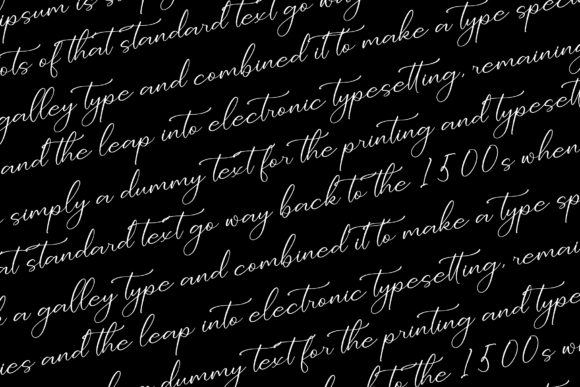 ipsum is simply
ots of that standard text go way
galley type and combined it to make a type speci
and the leap into electronic typesetting, remaining
simply a dummy text for the printing and typesett
at standard text go way back to the 1500s when
a galley type and combined it to make a type spe
ies and the leap into electronic typesetting, remain
dummy text for the printing and type
text go way back to the 1500s